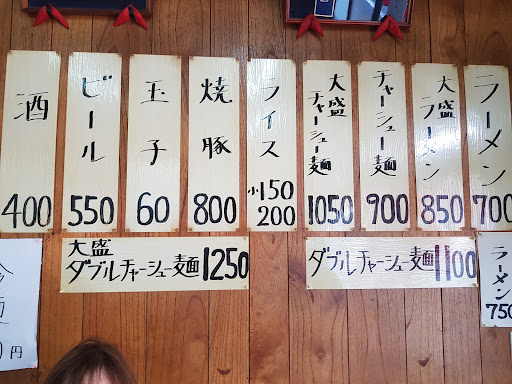 ラーメン
700
大盛
ラーメン
850
チャーシュー麺
900
大盛
チャーシュー麺
1050
ライス
小150
200
焼豚
800
玉子
60
ビール
550
酒
400
ダブルチャーシュー麺1100
大盛
ダブルチャーシュー麺1250
ラーメン
750
円